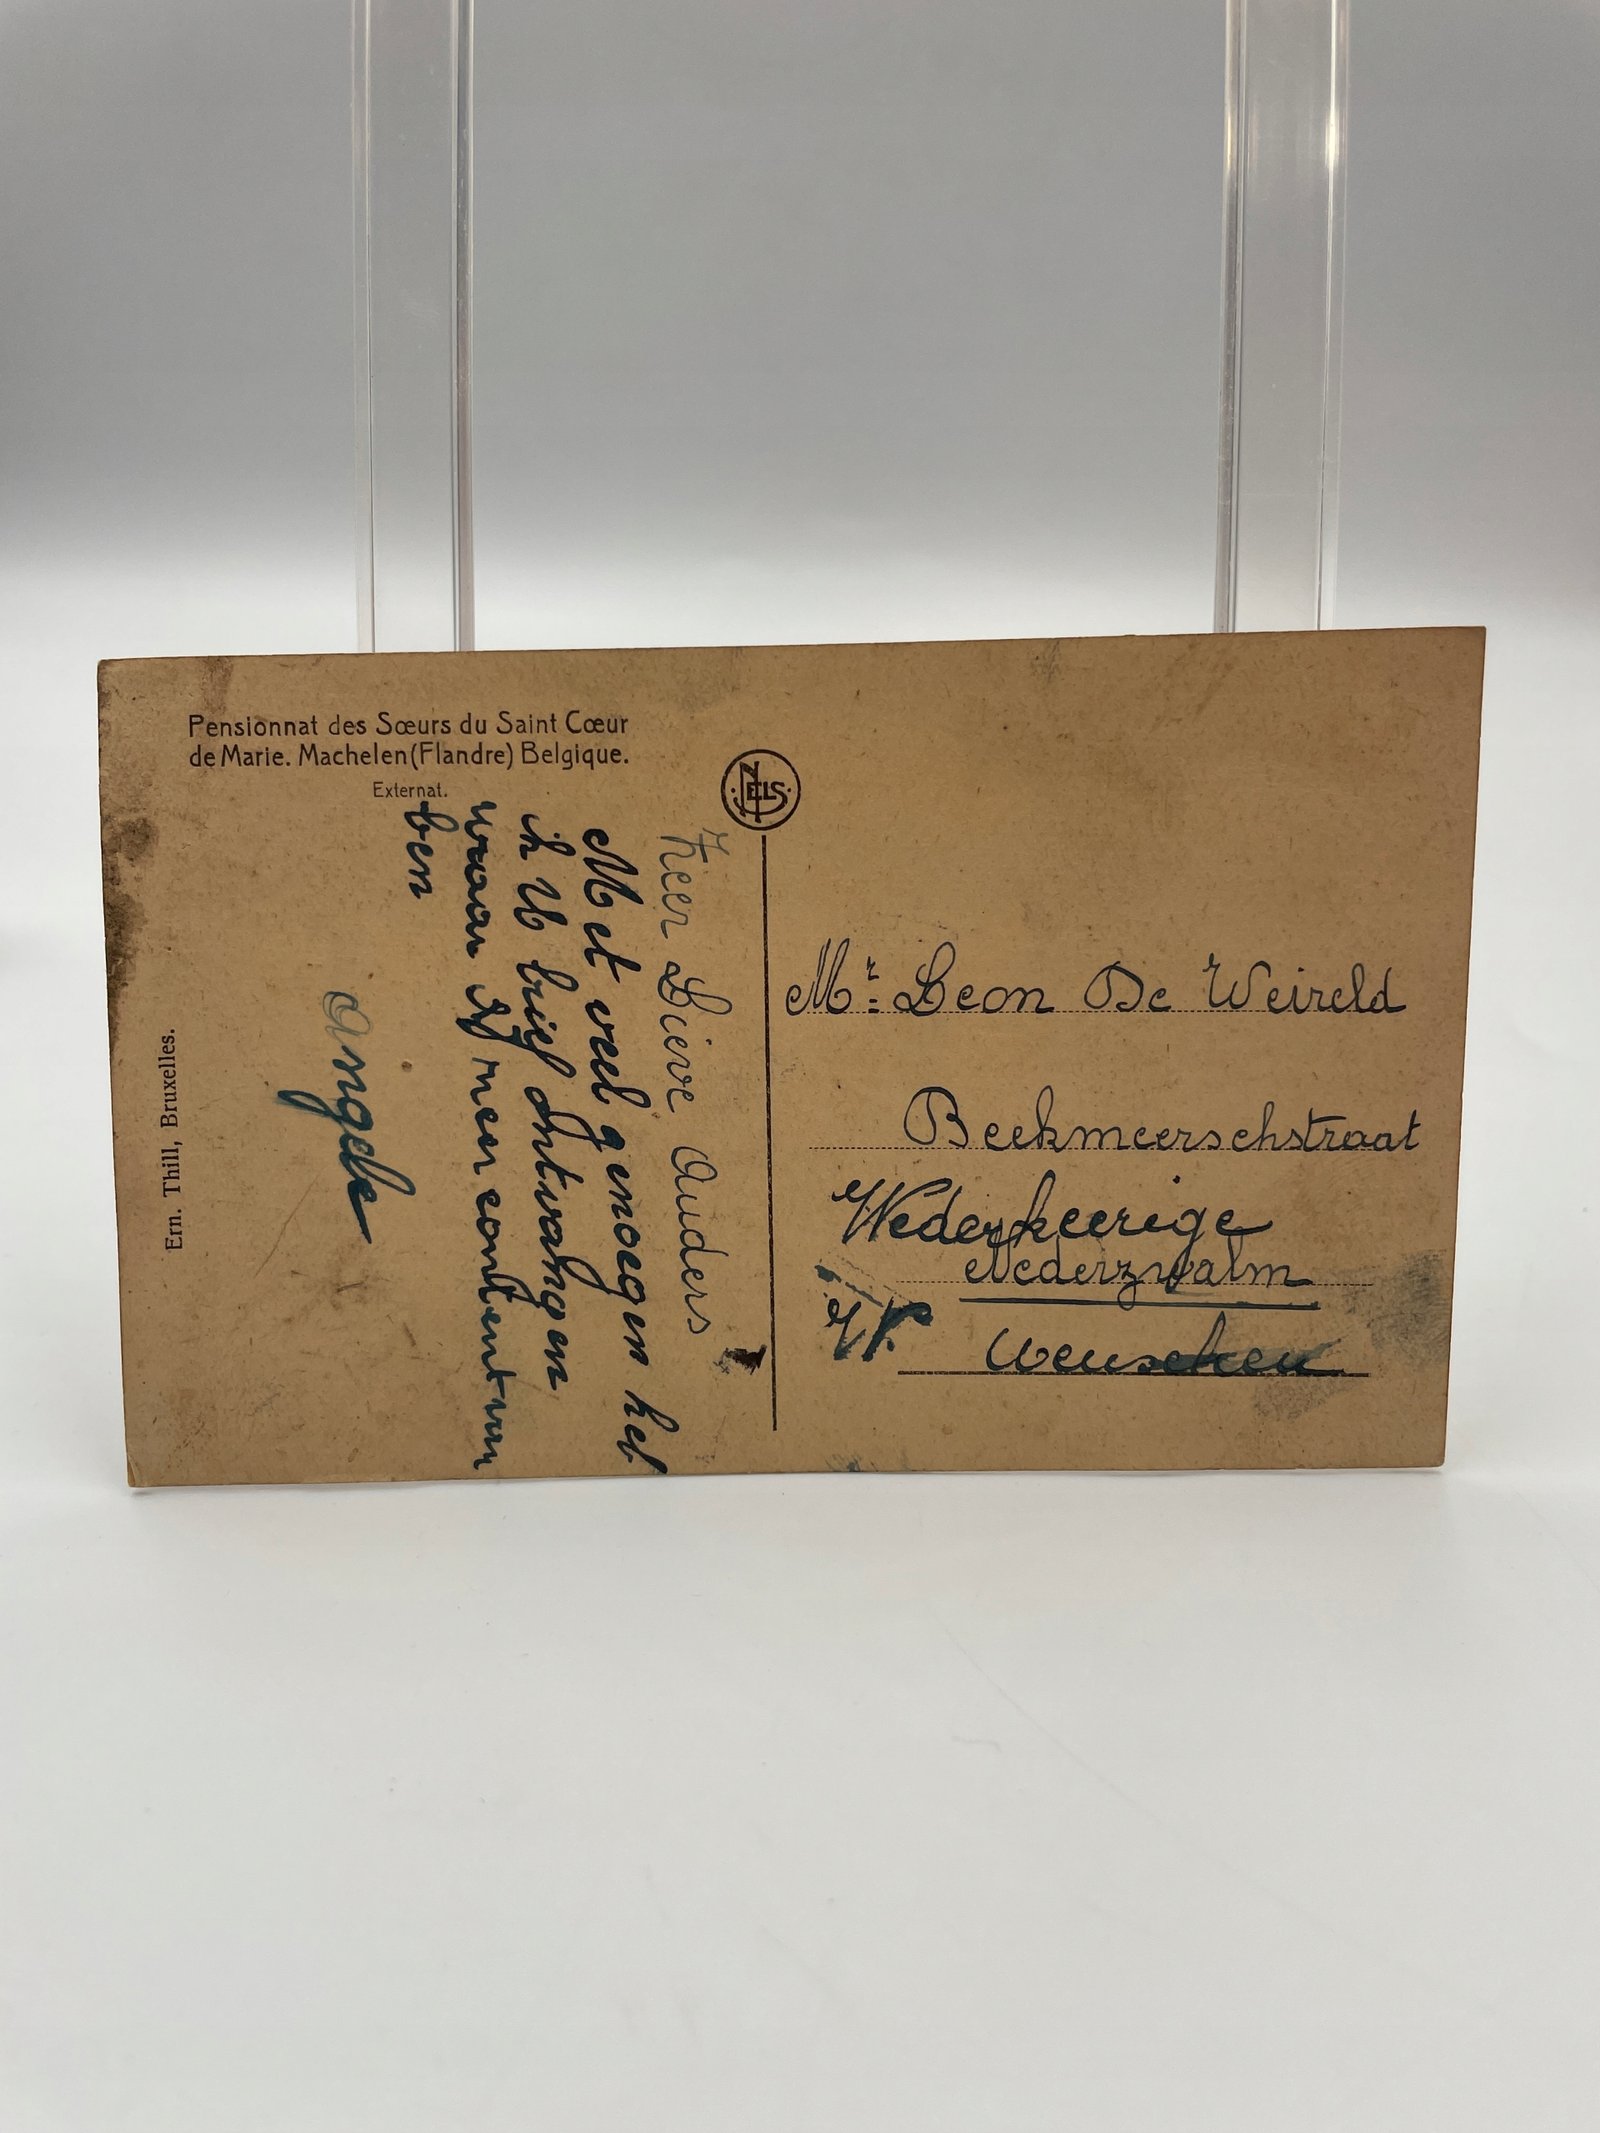 Pensionnat des Sœurs du Saint Cœur
de Marie. Machelen (Flandre) Belgique.
Externat.
NELS
Zeer Lieve Ouders
Met veel genoegen heb
ik U brief Ontvangen
waar Ik meer content van
ben
Angele
Ern. Thill, Bruxelles.
Mr Leon De Weireld
Beekmeerschstraat
Wederkeerige
Nederzwalm
Wenschen